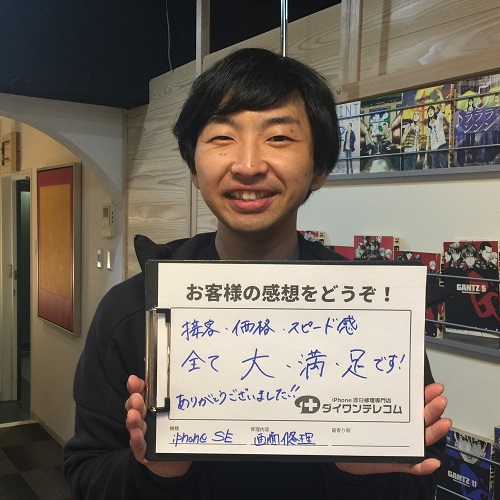 お客様の感想をどうぞ！
接客・価格・スピード感
全て 大・満・足です!
ありがとうございました!!
iPhone 即日修理専門店
ダイワンテレコム
機種 修理内容 最寄り駅
iphone SE 画面修理
GANTZ 5
GANTZ 11